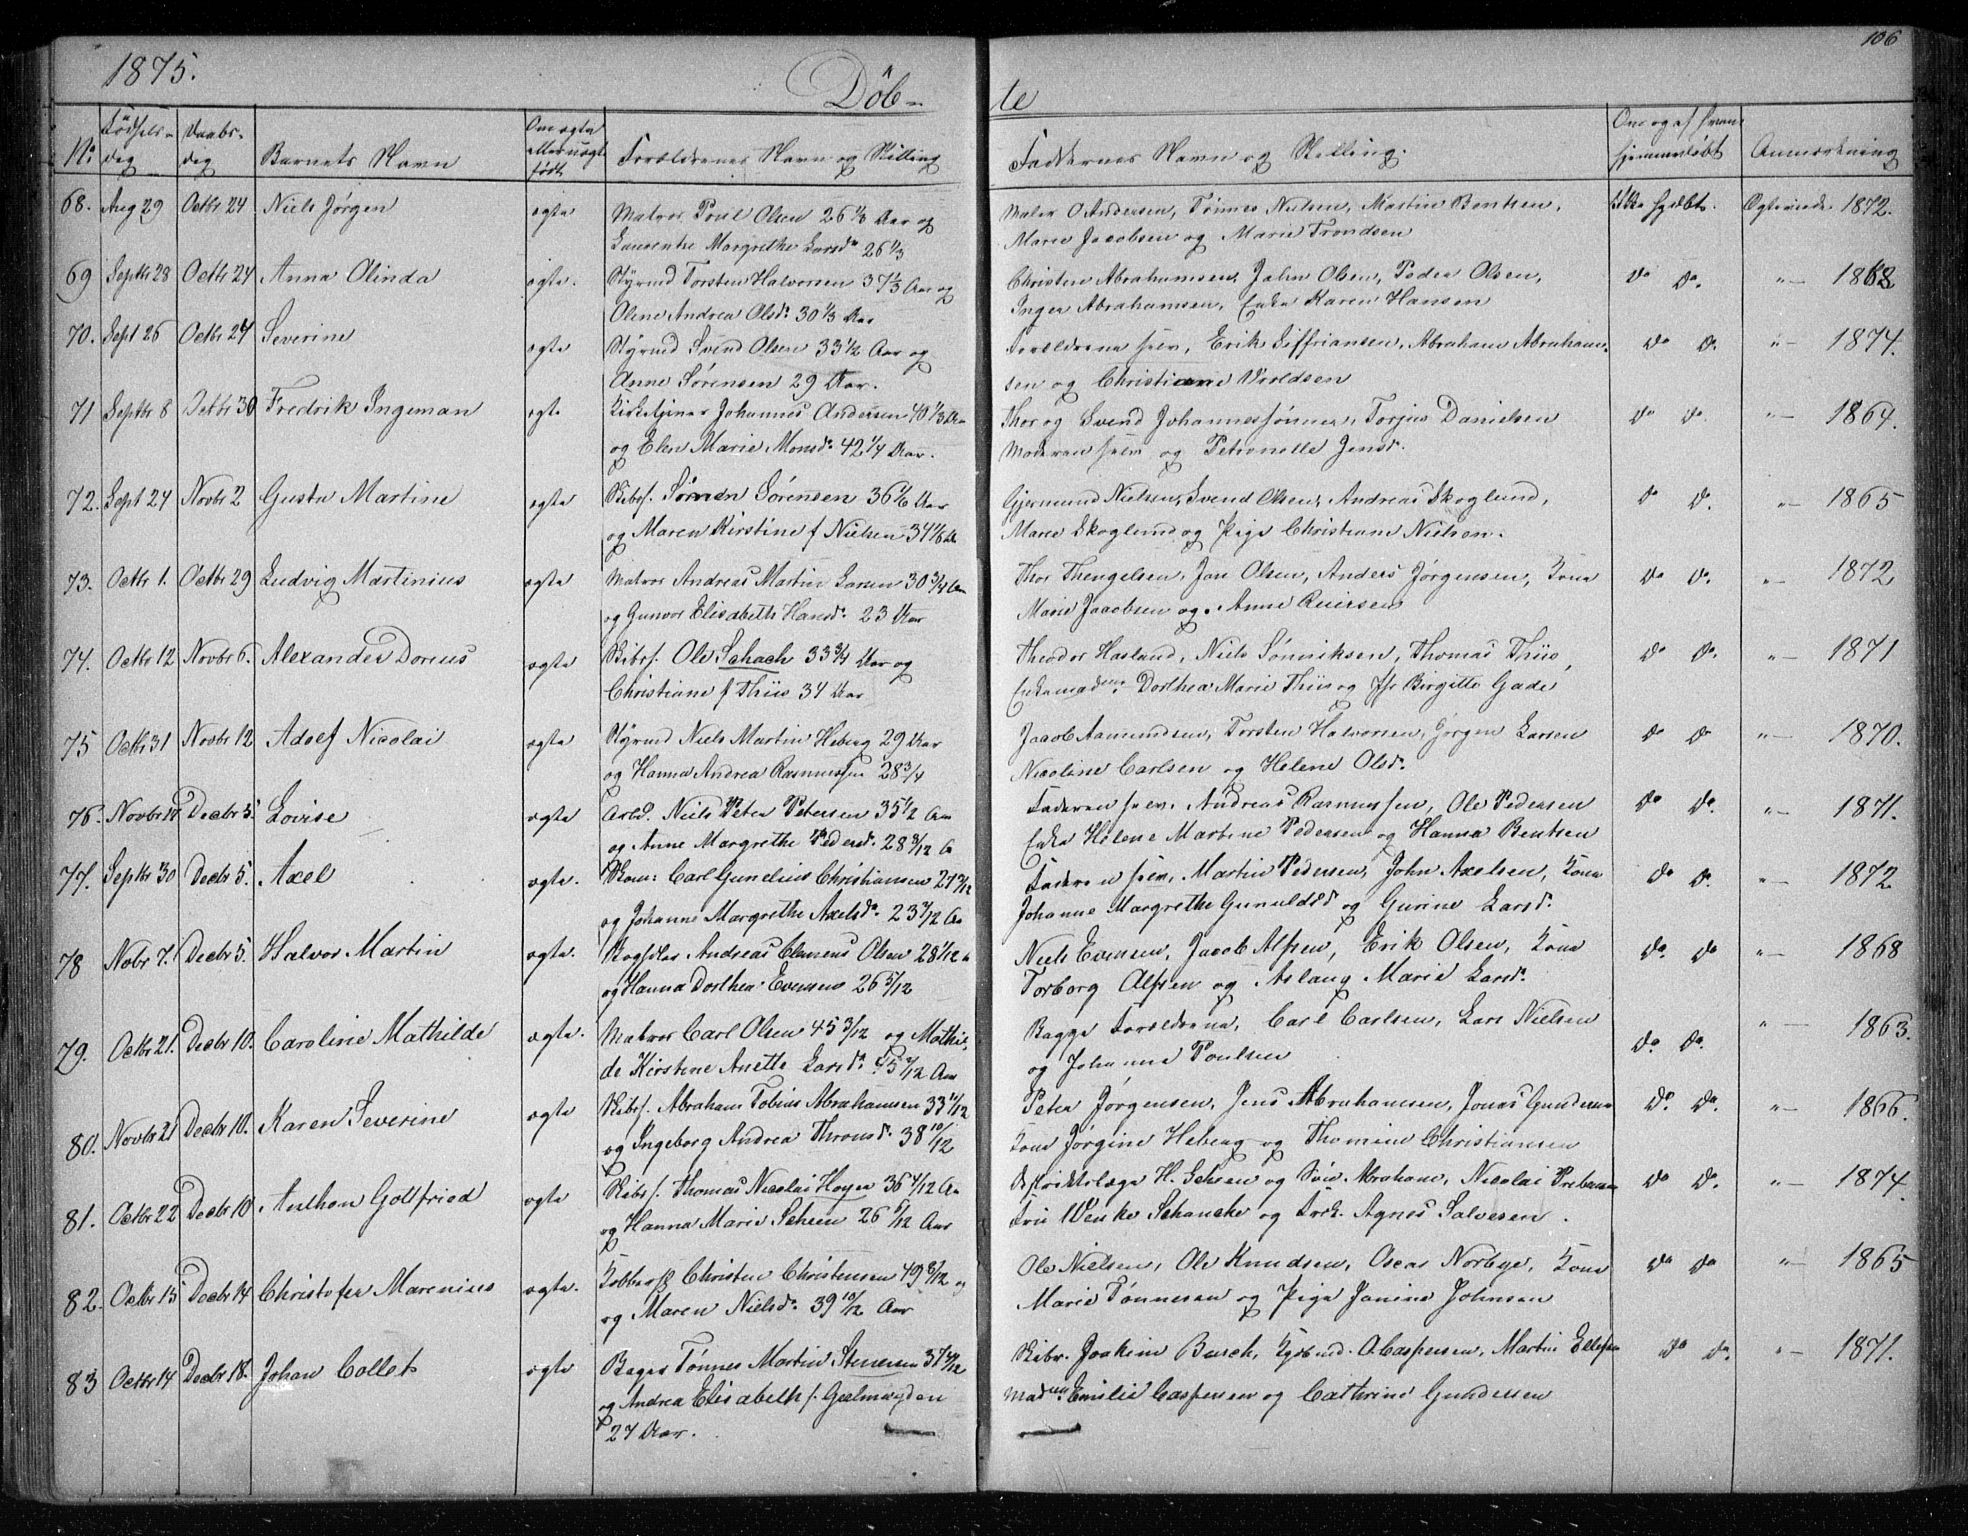 1875.
Döb-
te
106
No
Födsels-
dag
Daabs-
dag
Barnets Navn
Om ægte
eller uægte
født
Forældrenes Navn og Stilling
Faddernes Navn og Stilling.
hjemmedöbt
Anmærkning
68. Aug 29 Octbr 24 Niels Jørgen ægte Matros Poul Olsen 26 1/3 Aar og
Laurentse Margrethe Larsd. 26 1/3
Maler O Andersen, Tönnes Nielsen, Martin Bentsen,
Marie Jacobsen og Marie Trondsen
Ikke hjdbt. Ægteviede 1872.
69 Septbr 28 Octbr 24 Anna Olinda ægte. Styrmd Torsten Halvorsen 37 1/3 Aar og
Oline Andrea Olsd. 30 1/3 Aar
Christen Abrahamsen, John Olsen, Peder Olsen,
Inger Abrahamsen, Enke Karen Hansen
do do. " — 1868
70. Sept 26 Octbr 24 Severine ægte Styrmd Svend Olsen 33 1/2 Aar og
Anne Sörensen 29 Aar.
Forældrene selv, Erik Siffriansen, Abraham Abraham-
sen og Christiane Wroldsen
do do. " — 1874.
71 Septbr 8 Octbr 30 Fredrik Ingeman ægte Kirketjener Johannes Andersen 40 1/3 Aar
og Elen Marie Monsd. 42 1/4 Aar.
Thor og Svend Johannessönner, Torjus Danielsen
Moderen selv og Petronelle Jensd.
do do. " — 1864.
72. Sept 24 Novbr 2 Gusta Martine ægte Skibsf. Sören Sörensen 36 1/6 Aar
og Maren Kirstine f Nielsen 34 1/6 Aar
Gjermund Nielsen, Svend Olsen, Andreas Skoglund,
Maren Skoglund og Pige Christiane Nielsen.
do do. " — 1865
73. Octbr 1. Octbr 29 Ludvig Martinius ægte Matros Andreas Martin Larsen 30 3/4 Aar
og Gunvor Elisabeth Hansd. 23 Aar
Thor Thengelsen, Jan Olsen, Anders Jörgensen, Kone
Marie Jacobsen og Anne Reiersen
do do. " — 1872
74. Octbr 12 Novbr 6. Alexander Doreus ægte Skibsf. Ole Schach 33 3/4 Aar og
Christiane f Thiis 34 Aar
Theodor Hasland, Niels Sönniksen, Thomas Thiis,
Enkemadme Dorthea Marie Thiis og Jfr Birgitte Gade
do do. " — 1871
75 Octbr 31 Novbr 12 Adolf Nicolai ægte Styrmd Niels Martin Heberg 29 Aar
og Hanna Andrea Rasmussen 28 3/4
Jacob Aamundsen, Torsten Halvorsen, Jörgen Larsen
Nicoline Carlsen og Helene Olsd.
do do " — 1870.
76. Novbr 14 Decbr 5. Lovise ægte Arbd. Niels Peter Petersen 35 1/2 Aar
og Anne Margrethe Pedersd. 28 3/12 A
Faderen selv. Andreas Rasmussen, Ole Pedersen
Enke Helene Martine Pedersen og Hanna Bentsen
do do. " — 1871.
77. Septbr 30 Decbr 5. Axel ægte. Carl Gunelius Christiansen
og Johanne Margrethe Axelsd. 23 7/12 Aar
Faderen selv, Martin Pedersen, John Axelsen, Kone
Johanne Margrethe Gunuldsd og Gurine Larsd.
do do. " — 1872
78 Nobr 7. Decbr 5. Halvor Martin ægte. Andreas Clemens Olsen 28 1/12
og Hanna Dorthea Evensen 26 5/12
Niels Evensen, Jacob Alfsen, Erik Olsen, Kone
Torborg Alfsen og Aslaug Marie Larsd.
do. do " — 1868
79. Octbr 21. Decbr 10. Caroline Mathilde ægte. Matros Carl Olsen 45 3/12 og Mathil-
de Kirstine Anette Larsd. 45 /12 Aar
Begge Forældrene, Carl Carlsen, Lars Nielsen
og Johanne Poulsen
do. do. " — 1863.
80. Novbr 21 Decbr 10. Karen Severine ægte Skibsf. Abraham Tobias Abrahamsen
og Ingeborg Andrea Thronsd. 38 10/12
Peter Jörgensen, Jens Abrahamsen, Jonas Gundersen
Kone Jörgine Heberg og Thomine Christiansen
do. do. " — 1866.
81. Octbr 22 Decbr 10 Anthon Gottfried ægte Skibsf. Thomas Nicolai Hoyer 36 4/12 Aar
og Hanna Marie Scheen 26 5/12 Aar
Distriktslæge H. Gehsen og Søn Abraham, Nicolai Prebensen
Fru Wenke Schanche og Frk. Agnes Salvesen.
do do. " — 1874.
82. Octbr 15 Decbr 14 Christofer Marenius ægte. Christen Christensen 49 8/12
og Maren Nielsd. 39 10/12 Aar
Ole Nielsen, Ole Knudsen, Oscar Norbye, Kone
Marie Tönnesen og Pige Janine Johnsen
do do " — 1865
83 Octbr 14 Decbr 18. Johan Collet ægte Bager Tönnes Martin Stenersen
og Andrea Elisabeth f. Gjelmeyden
27 Aar.
Skibr. Joakim Busch, Kjøbmd. O. Caspersen, Martin Ellefsen
Madme Emilie Caspersen og Cathrine Gundersen
do do. " — 1871.